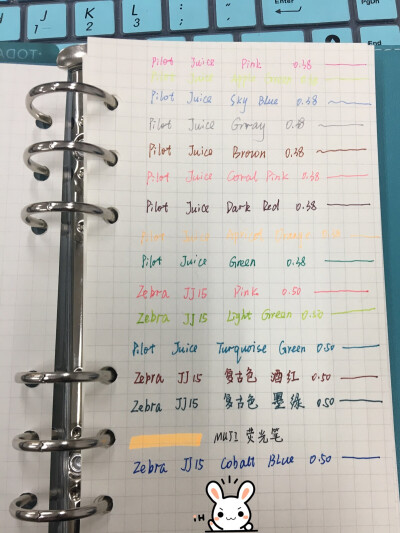 J 1
K 2
L 3
:
;
Enter
PgDn
End
Pilot Juice Pink 0.38
Pilot Juice Sky Blue 0.38
Pilot Juice Grray 0.38
Pilot Juice Brown 0.38
Pilot Juice Corral Pink 0.38
Pilot Juice Dark Red 0.38
Pilot Juice
Pilot Juice Green 0.38
Zebra JJ15 Pink 0.50
Zebra JJ15 Light Green 0.50
Pilot Juice Turquoise Green 0.50
Zebra JJ15 复古色 酒红 0.50
Zebra JJ15 复古色 墨绿 0.50
MUJI 荧光笔
Zebra JJ15 Cobalt Blue 0.50
.H